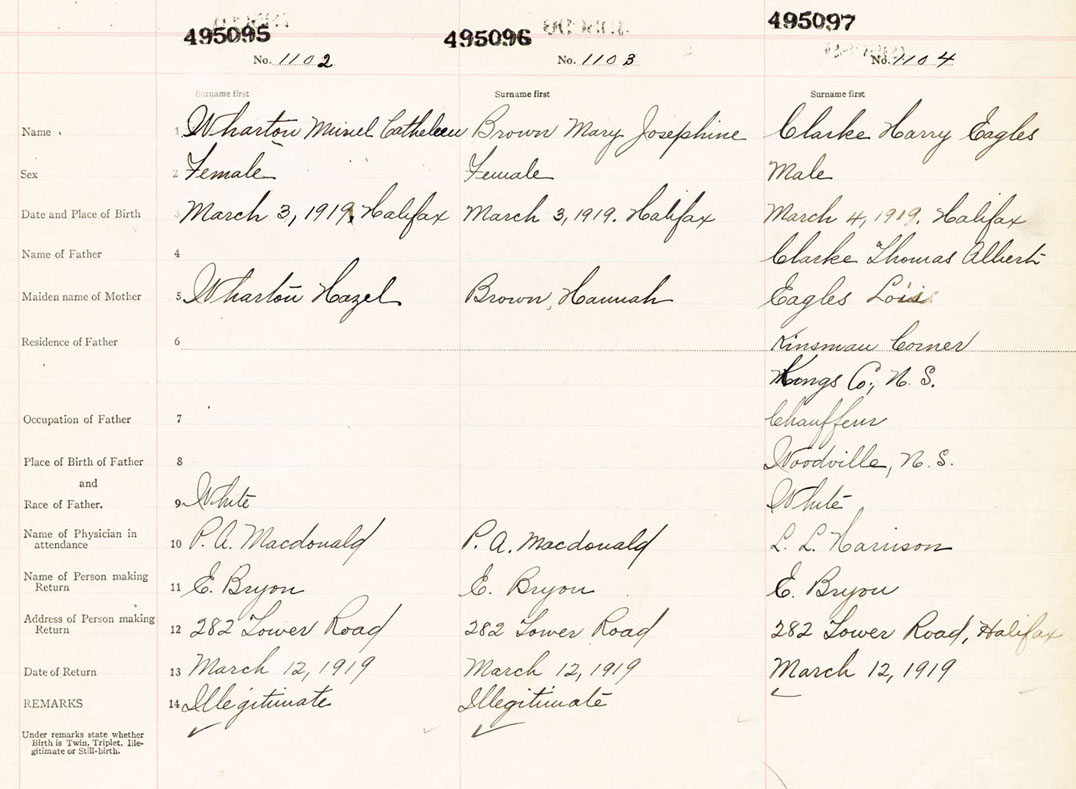 495095 495096 495097
No. 1102 No. 1103 No. 1104
Surname first Surname first Surname first
Name 1 Wharton Muriel Cathleen Brown Mary Josephine Clarke Harry Eagles
Sex 2 Female Female Male
Date and Place of Birth 3 March 3, 1919, Halifax March 3, 1919. Halifax March 4, 1919. Halifax
Name of Father 4 Clarke Thomas Albert
Maiden name of Mother 5 Wharton Hazel Brown, Hannah Eagles Lois
Residence of Father 6 Kinsman Corner
Kings Co., N. S.
Occupation of Father 7 Chauffeur
Place of Birth of Father 8 Woodville, N. S.
and
Race of Father. 9 White White
Name of Physician in
attendance 10 P. A. Macdonald P. A. Macdonald L. L. Harrison
Name of Person making
Return 11 E. Bryon E. Bryon E. Bryon
Address of Person making
Return 12 282 Tower Road 282 Tower Road 282 Tower Road, Halifax
Date of Return 13 March 12, 1919 March 12, 1919 March 12, 1919
REMARKS 14 Illegitimate Illegitimate
Under remarks state whether
Birth is Twin, Triplet, Ille-
gitimate or Still-birth.